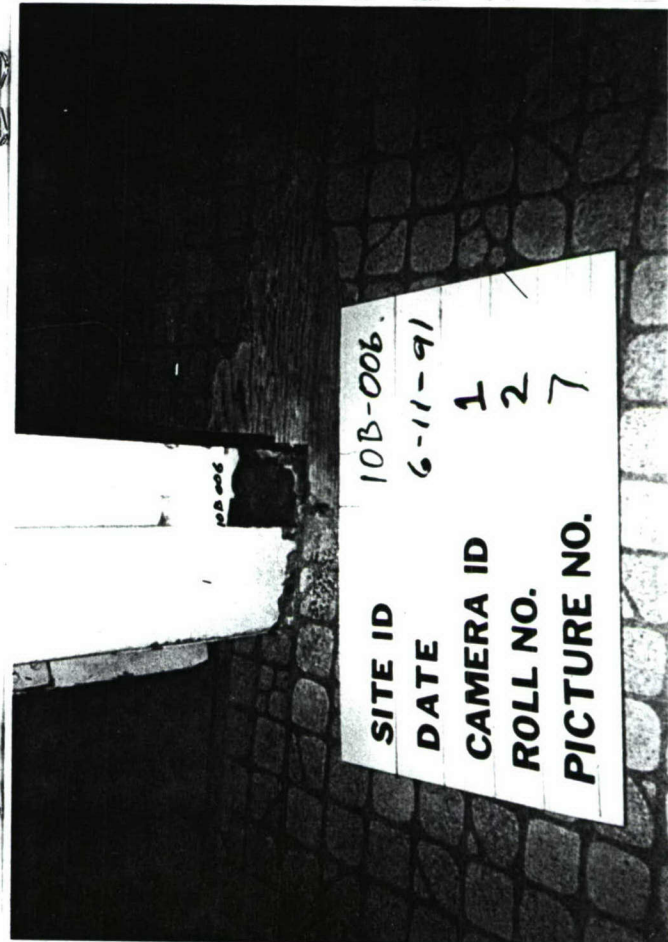 10B006
SITE ID 10B-006.
DATE 6-11-91
CAMERA ID 1
ROLL NO. 2
PICTURE NO. 7